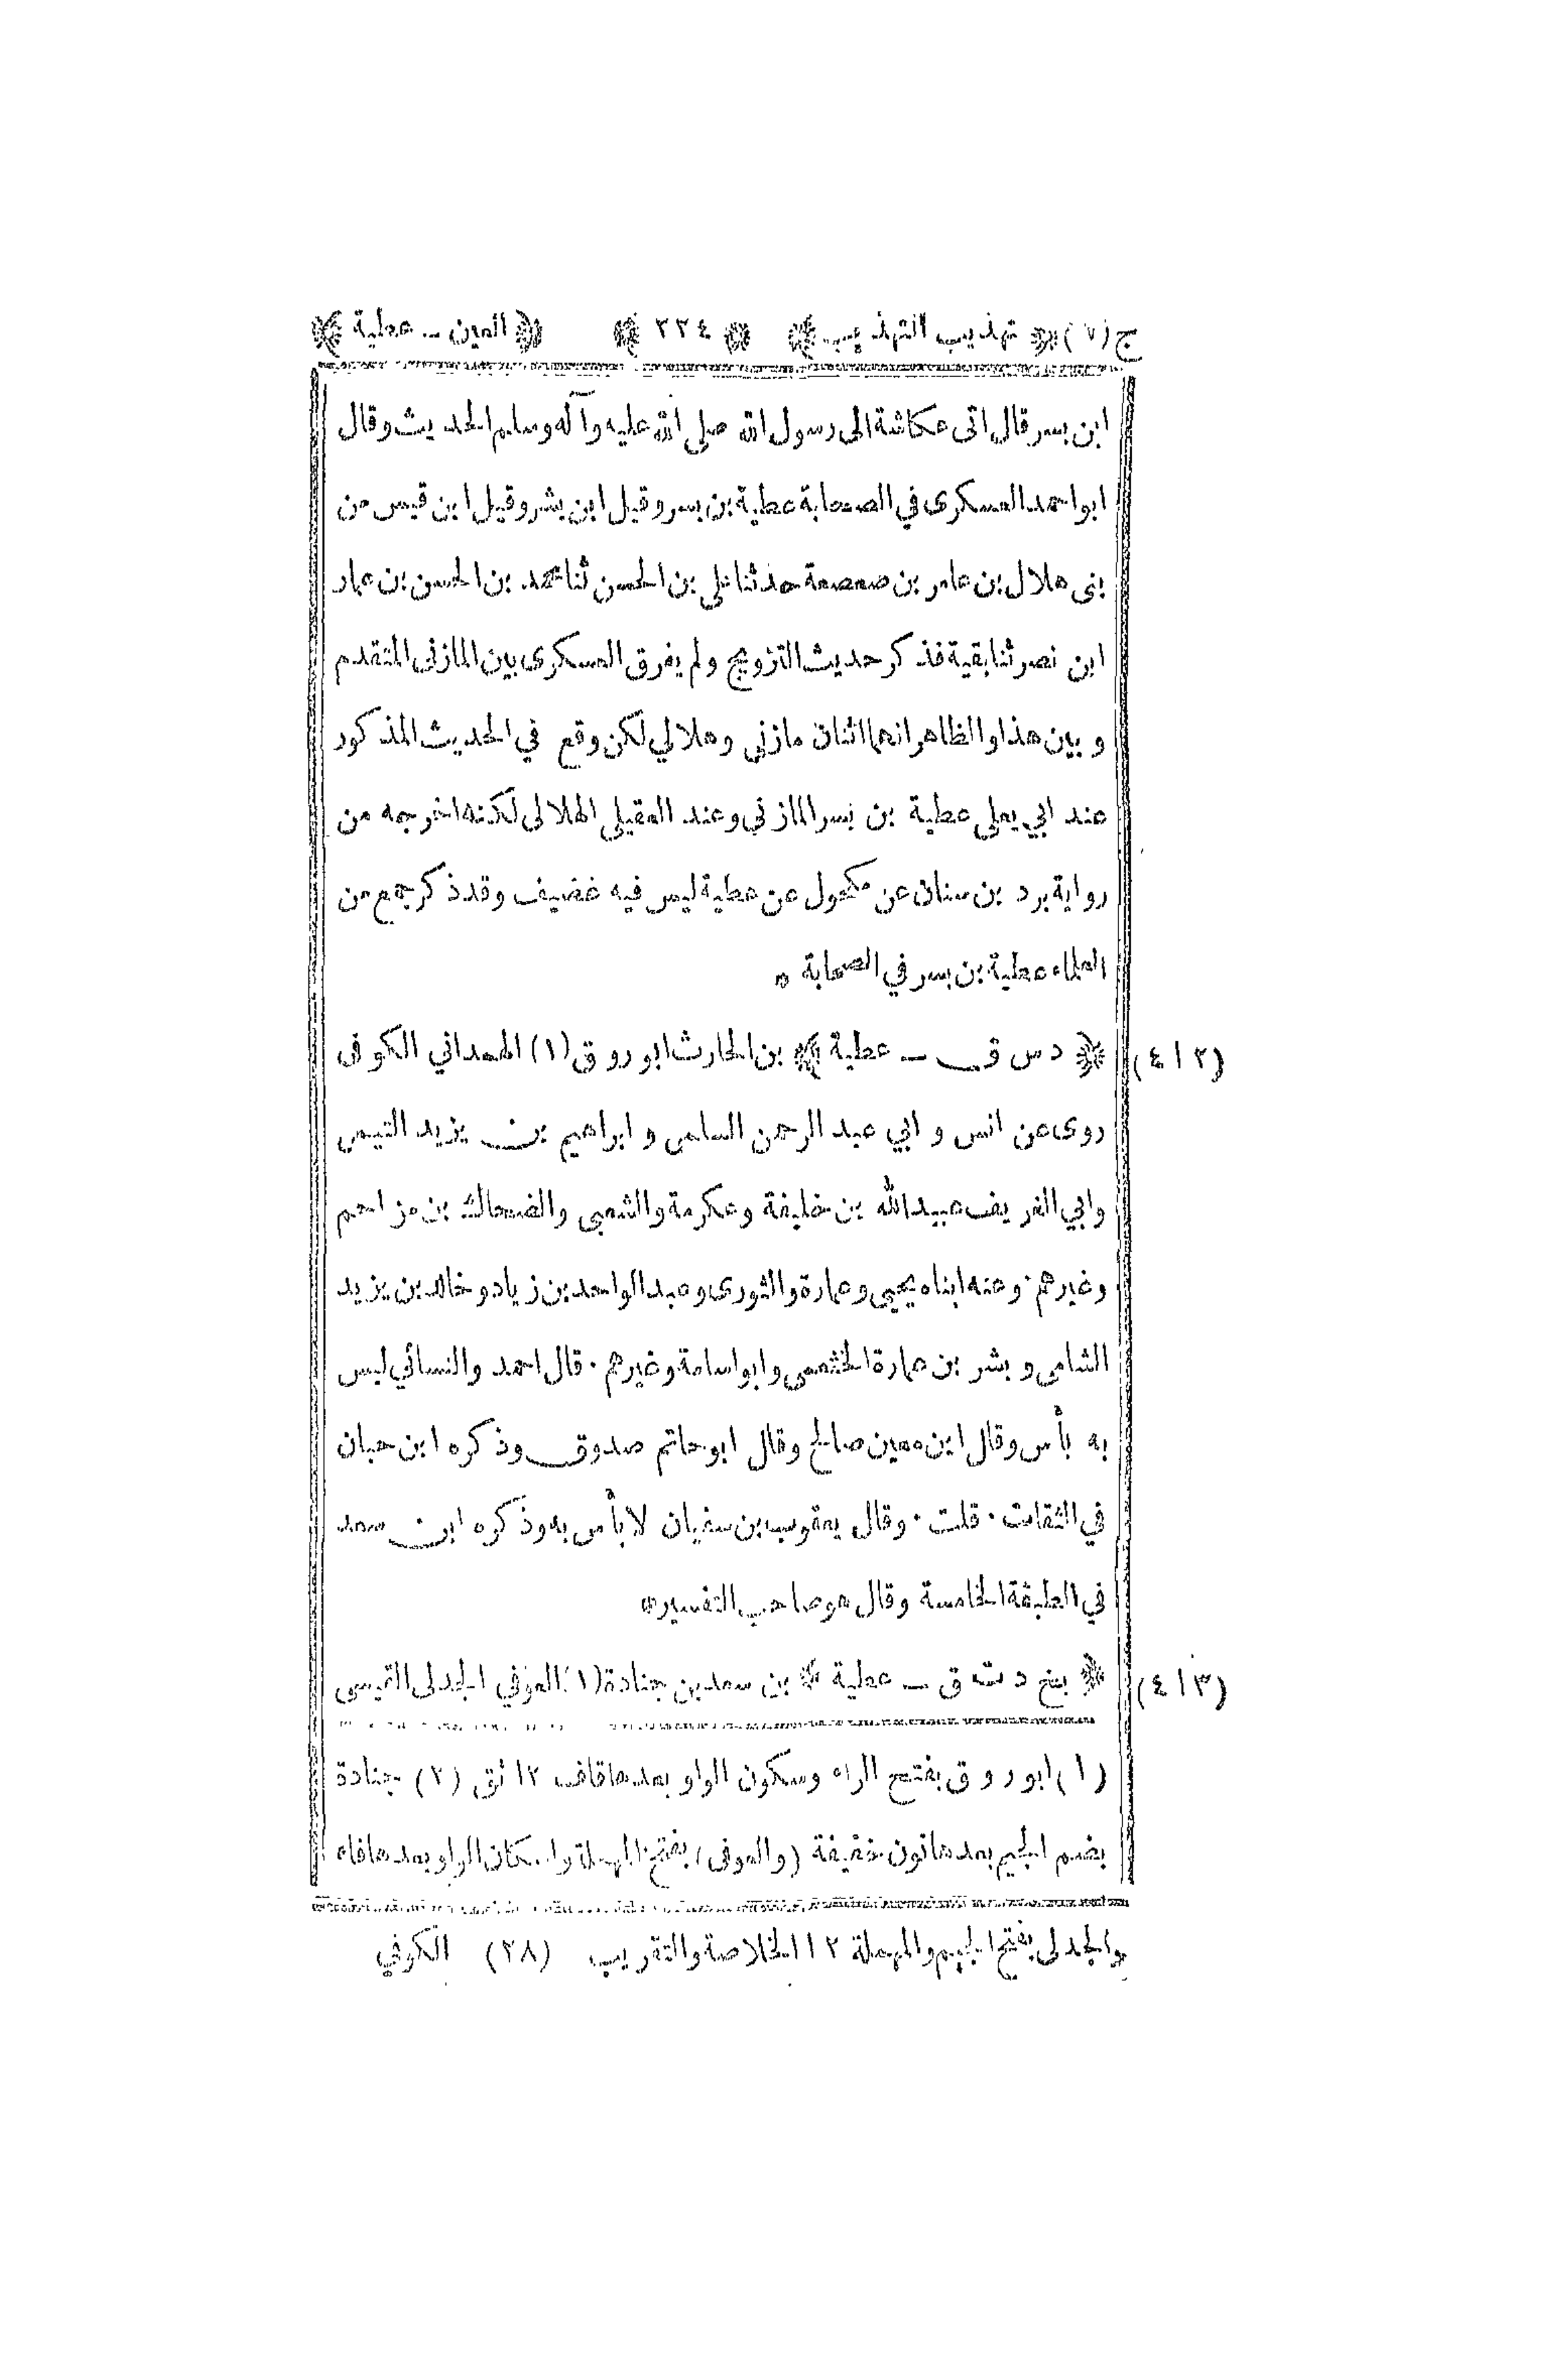 ج (٧) ﴿ تهذيب التهذيب ﴾ ﴿ ٢٢٤ ﴾ ﴿ العين ــ عطية ﴾
ابن بسر قال اتى عكاشة الى رسول الله صلى الله عليه وآله وسلم الحديث وقال
ابو احمد العسكرى في الصحابة عطية بن بسر وقيل ابن بشر وقيل ابن قيس من
بنى هلال بن عامر بن صعصعة حدثنا على بن الحسن ثنا محمد بن الحسن بن عمار
ابن نصر ثنا بقية فذكر حديث التزويج ولم يفرق العسكرى بين المازنى المتقدم
و بين هذا والظاهر انهما اثنان مازني وهلالي لكن وقع في الحديث المذكور
عند ابي يعلى عطية بن بسر المازني وعند العقيلى الهلالى لكنه اخرجه من
رواية برد بن سنان عن مكحول عن عطية ليس فيه غضيف وقد ذكر جمع من
العلماء عطية بن بسر في الصحابة ٭
(٤١٢) ﴿ د س ق ــ عطية ﴾ بن الحارث ابو روق (١) الهمداني الكوفى
روى عن انس و ابي عبد الرحمن السلمى و ابراهيم بن يزيد التيمى
وابي الغريف عبيدالله بن خليفة وعكرمة والشعبى والضحاك بن مزاحم
وغيرهم · وعنه ابناه يحيى وعمارة والثورى وعبد الواحد بن زياد وخالد بن يزيد
الشامى و بشر بن عمارة الخثعمى وابو اسامة وغيرهم · قال احمد والنسائي ليس
به بأس وقال ابن معين صالح وقال ابو حاتم صدوق وذكره ابن حبان
في الثقات · قلت · وقال يعقوب بن سفيان لا بأس به وذكره ابن سعد
في الطبقة الخامسة وقال هو صاحب التفسير ٭
(٤١٣) ﴿ بخ د ت ق ــ عطية ﴾ بن سعد بن جنادة (١) العوفي الجدلى القيسى
(١) ابو روق بفتح الراء وسكون الواو بعدها قاف ١٢ تق (٢) جنادة
بضم الجيم بعدها نون خفيفة (والعوفى) بفتح المهملة واسكان الواو بعدها فاء
والجدلى بفتح الجيم والمهملة ١٢ الخلاصة والتقريب (٢٨) الكوفي